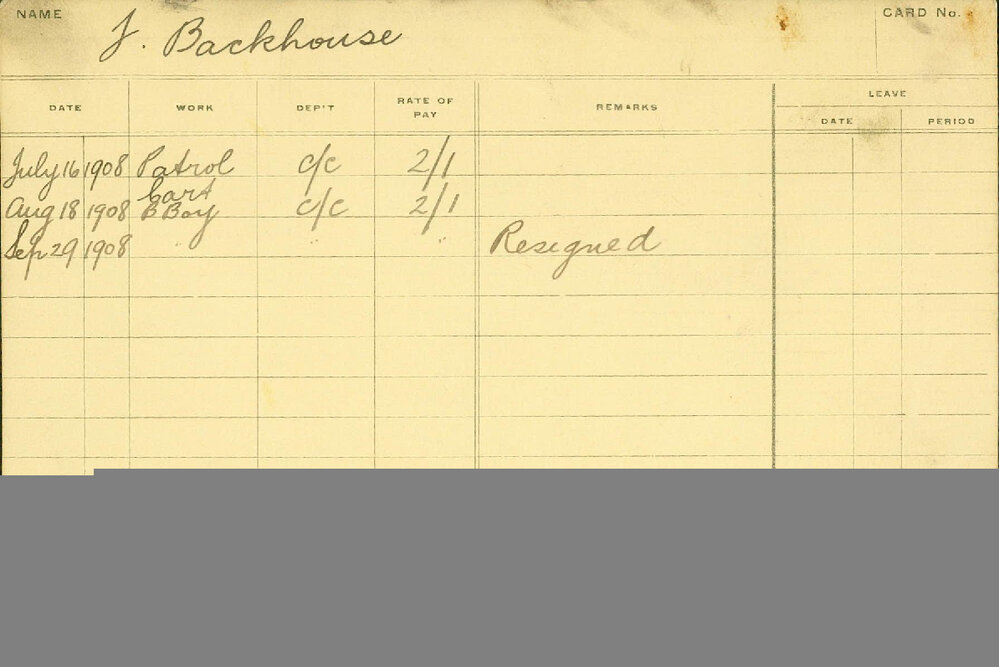 NAME J. Backhouse CARD No.
DATE WORK DEP'T RATE OF PAY REMARKS LEAVE
DATE PERIOD
July 16 1908 Patrol c/c 2/1
Aug 18 1908 Cart B Boy c/c 2/1
Sep 29 1908 " " " Resigned